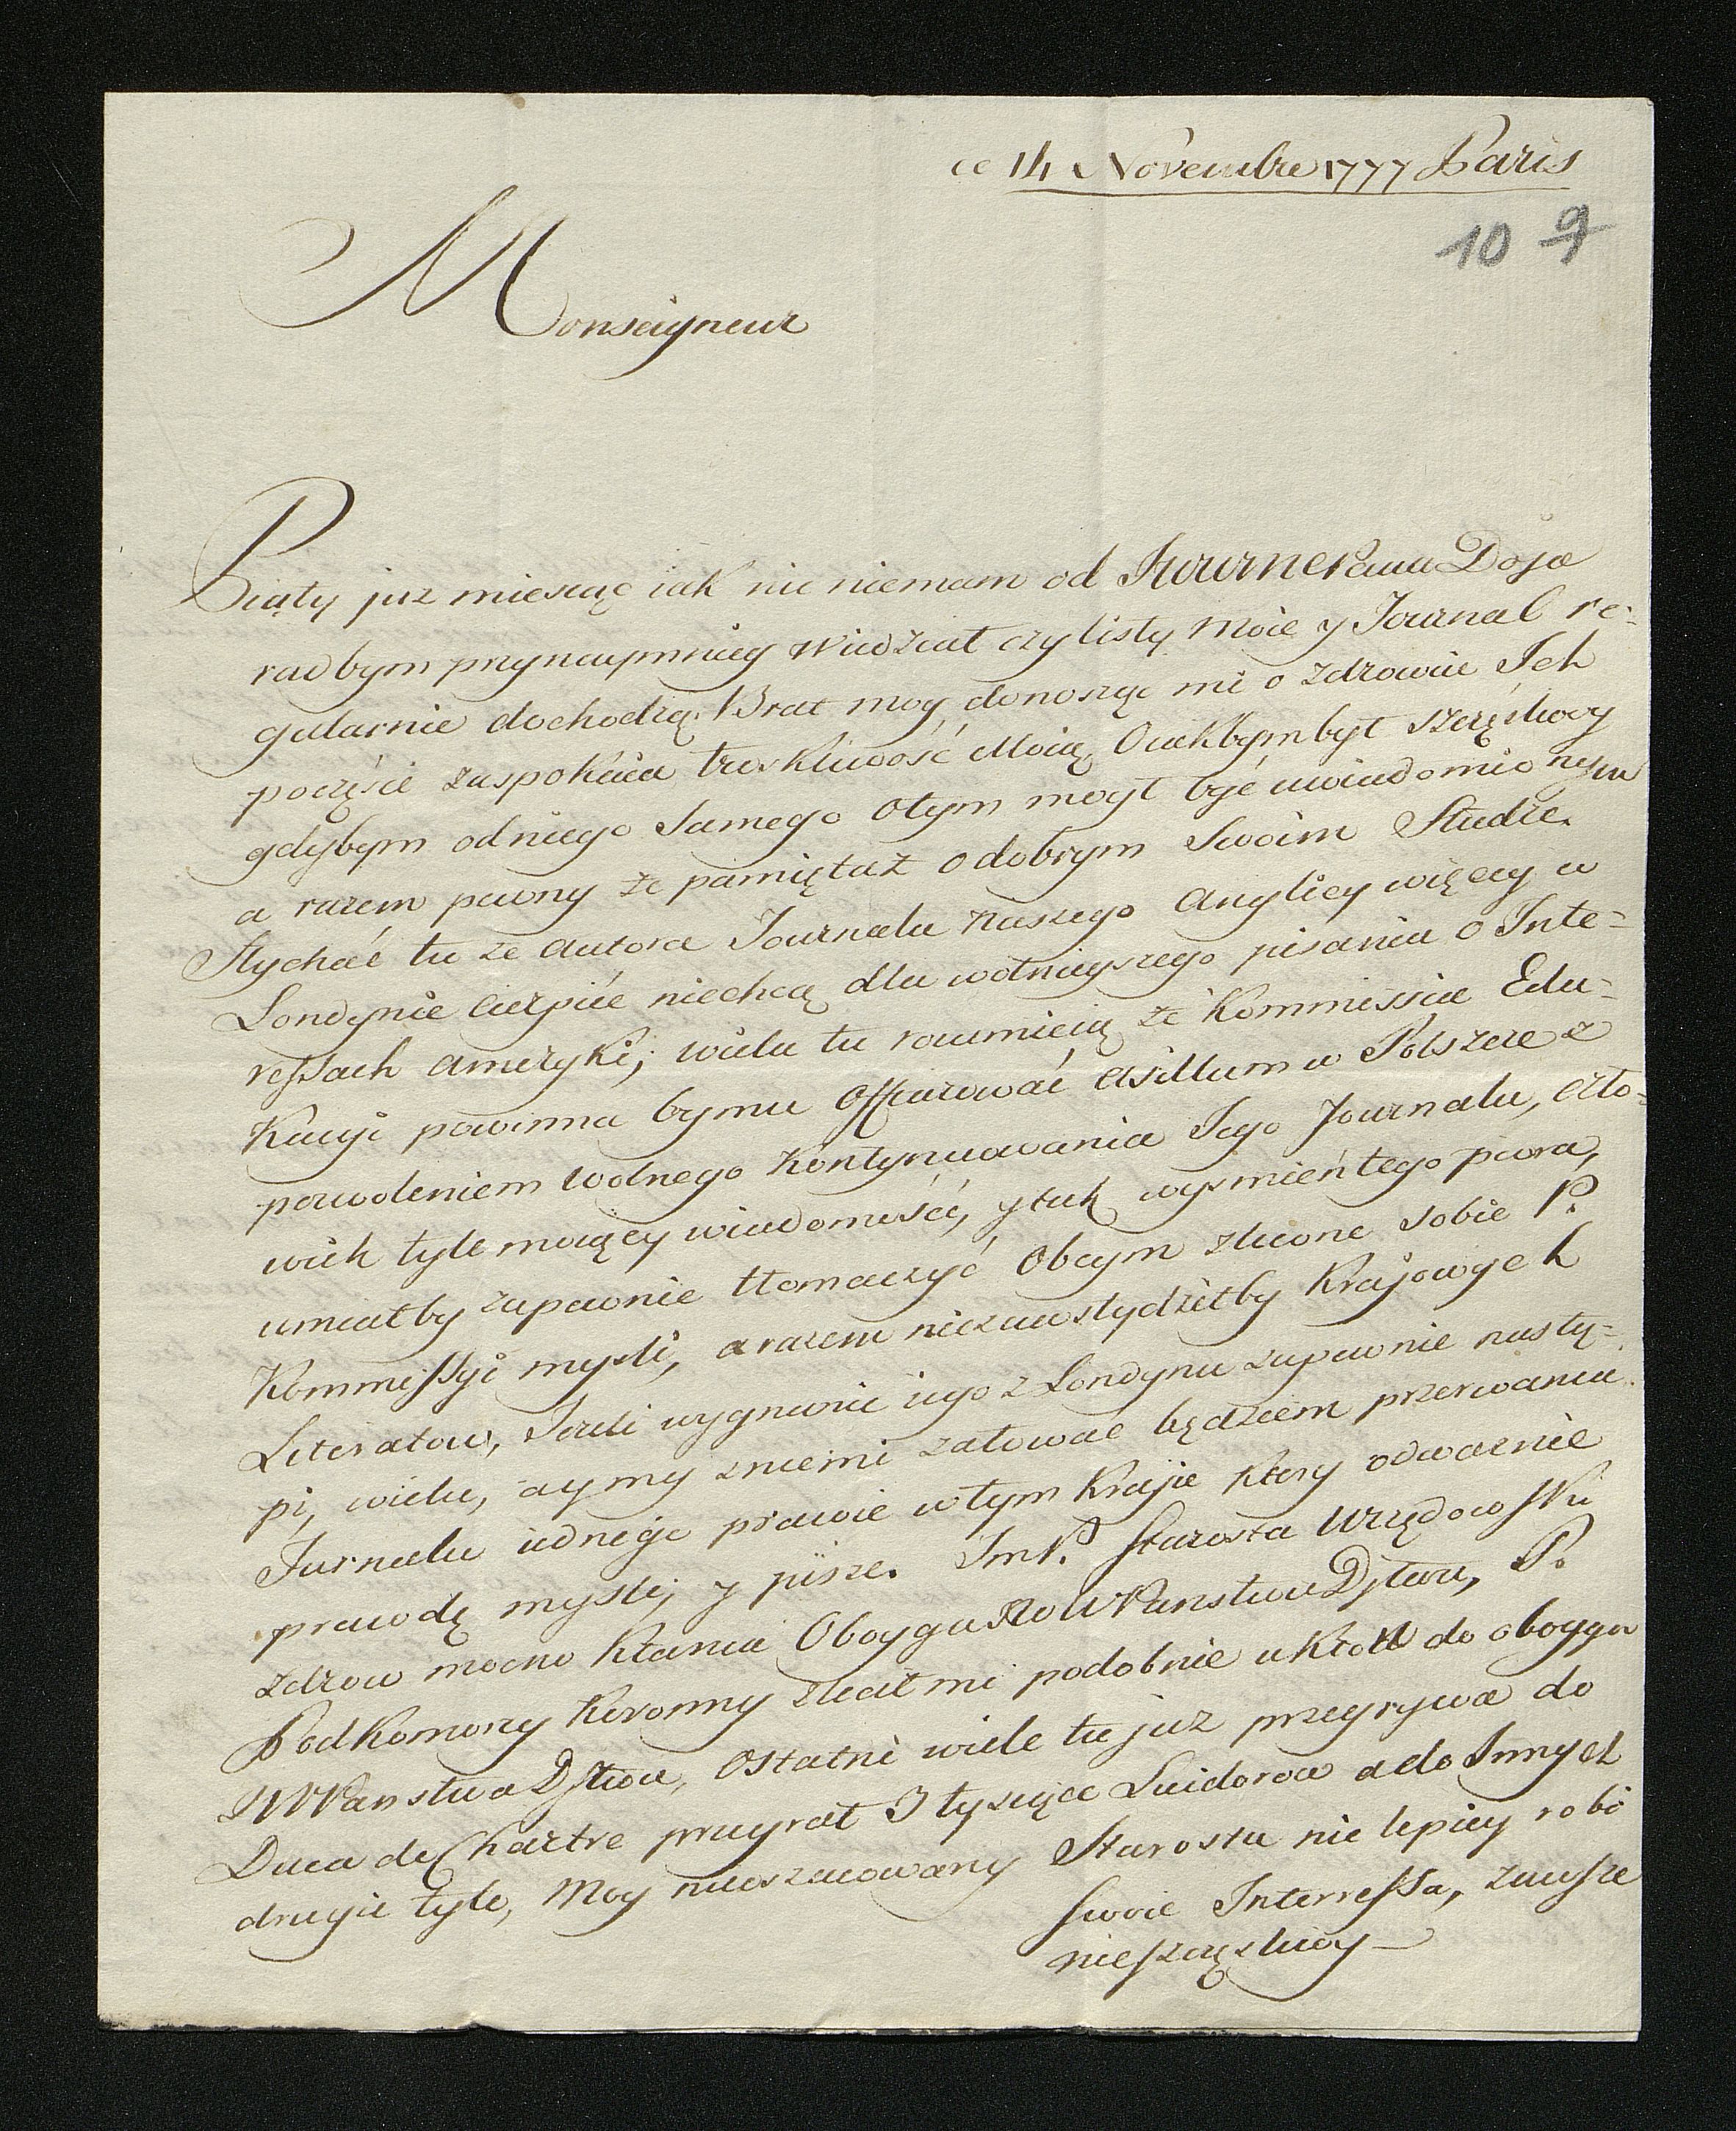 ce 14 Novembre 1777 Paris
10 9
Monseigneur
Piąty juz miesiąc iak nic niemam od JWWMC Pana Do͠ja
radbym przynaymniey wiedział czy listy moie y Journal re-
gularnie dochodzą. Brat moy donosząc mi o zdrowiu Ich
poczęści zaspokaia troskliwość Moią, O iakbym był szczęśliwy
gdybym od niego Samego otym mogł być uwiadomionym
a razem pewny ze pamiętasz o dobrym Swoim Sludze.
Słychać tu ze autora Journalu naszego Anglicy więcey w
Londynie cierpieć niechcą dla wolnieyszego pisania o Inte-
ressach Ameryki; wielu tu rozumieią że Kommissia Edu-
kacyi powinna by mu offiarować Asillum w Polszcze z
pozwoleniem wolnego kontynuowania Jego Journalu, czło-
wiek tyle maiący wiadomości, y tak wysmienitego piora,
umiałby zapewnie tłomaczyć Obcym zlecone sobie P.
Kommissyi mysli, a razem niezawstydziłby Krajowych
Literatow, Jezli wygnanie iego z Londynu zapewnie nastą-
pi, wielu, a y my z niemi załować będziem przerwania
Jurnalu iednego prawie w tym Kraju ktory odwaznie
prawdę mysli, y pisze. Im P. Starosta Urzędowski
zdrow mocno kłania Oboyga JWW Panstwa D͠jstwu, P.
Podkomorzy Koronny zlecił mi podobnie ukłon do oboyga
JWWPanstwa D͠jstwa, Ostatni wiele tu juz przegrywa do
Duca de Chartre przegrał 3 tysiące Luidorow a do Innych
drugie tyle, Moy nieoszacowany Starosta nie lepiey robi
swoie Interressa, zawsze
nieszczęsliwy —